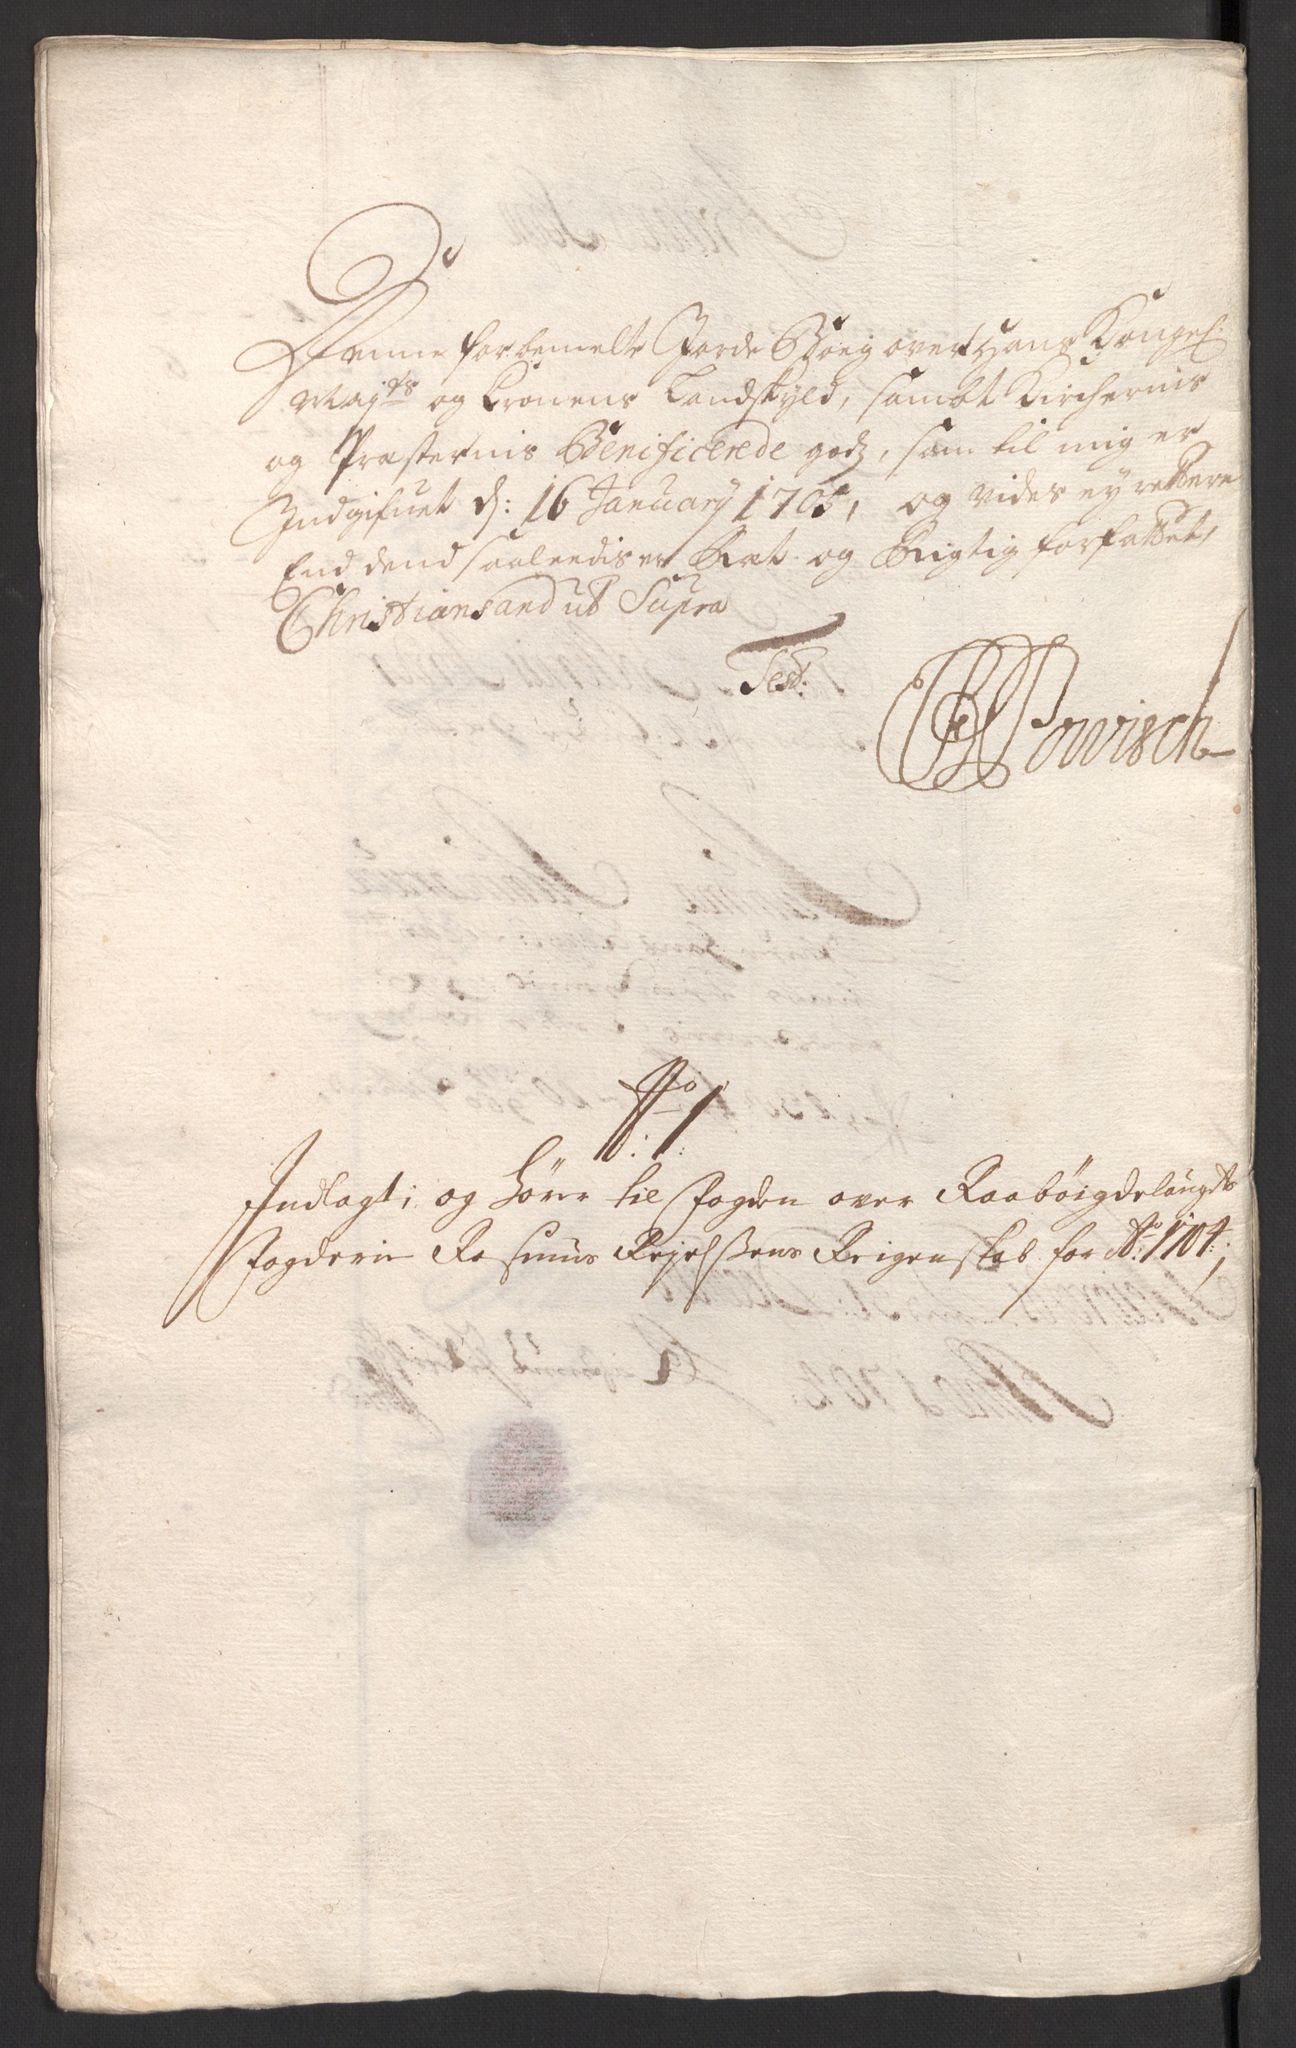 Denne forbemelte Jorde Boeg over Hans Kongel:
Maÿts og Cronens Landskyld, sambt Kirchernis
og Præsternis Benificerede godz, som til mig er
Indgifuet d: 16 January 1705, og vides ey rettere
End dend saaleedis er Ret og Rigtig forfattet,
Christiansand ut Supra
Test:
Powisch
No: 1:
Indlagt; og hører til fogden over Raabøigdelaugds
fogderie Rasmus Rejelssens Reigenskab for Ao: 1704;